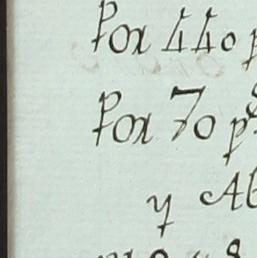 Por 440 p
Por 70 p
y Ab